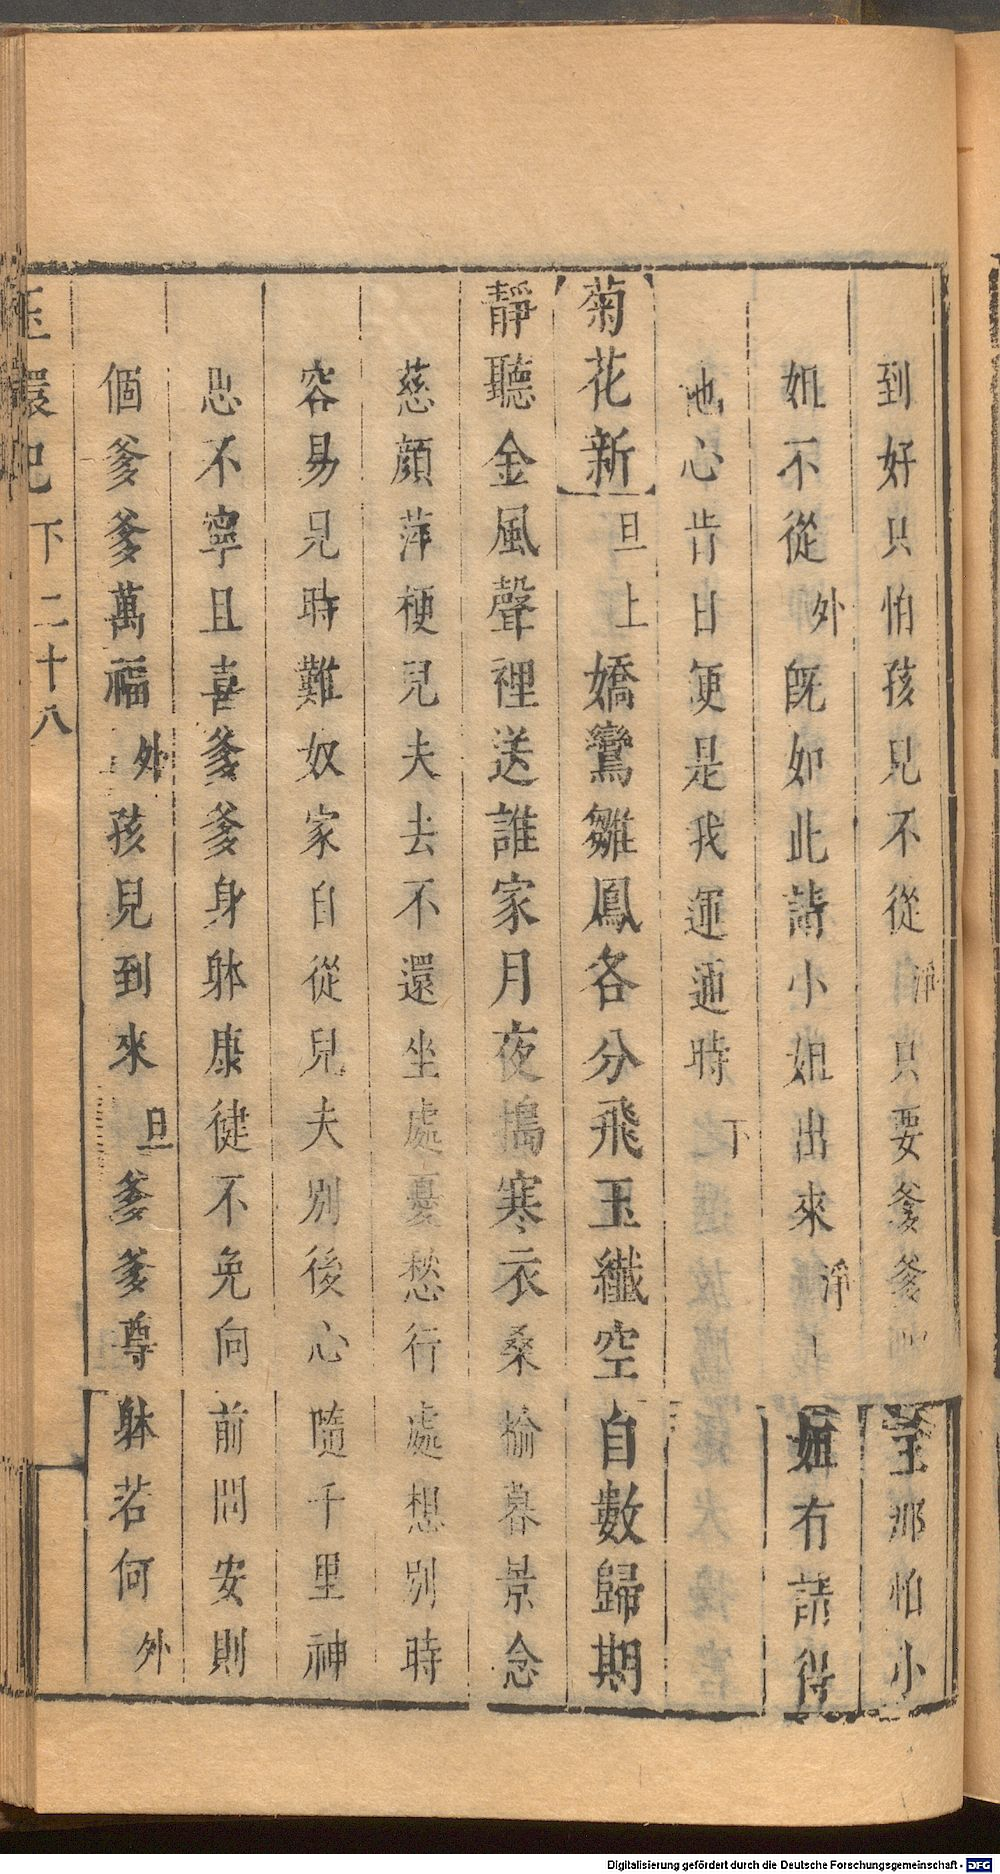 到好只怕孩兒不從淨只要爹爹主那怕小
姐不從外旣如此請小姐出來淨小姐有請得
他心肯日便是我運通時下
菊花新旦上嬌鸞雛鳳各分飛玉纖空自數歸期
靜聽金風聲裡送誰家月夜搗寒衣桑榆暮景念
慈顏萍梗兒夫去不還坐處憂愁行處想別時
容易見時難奴家自從兒夫別後心隨千里神
思不寧且喜爹爹身躰康健不免向前問安則
個爹爹萬福外孩兒到來旦爹爹尊躰若何外
玉環記下二十八
Digitalisierung gefördert durch die Deutsche Forschungsgemeinschaft - DFG